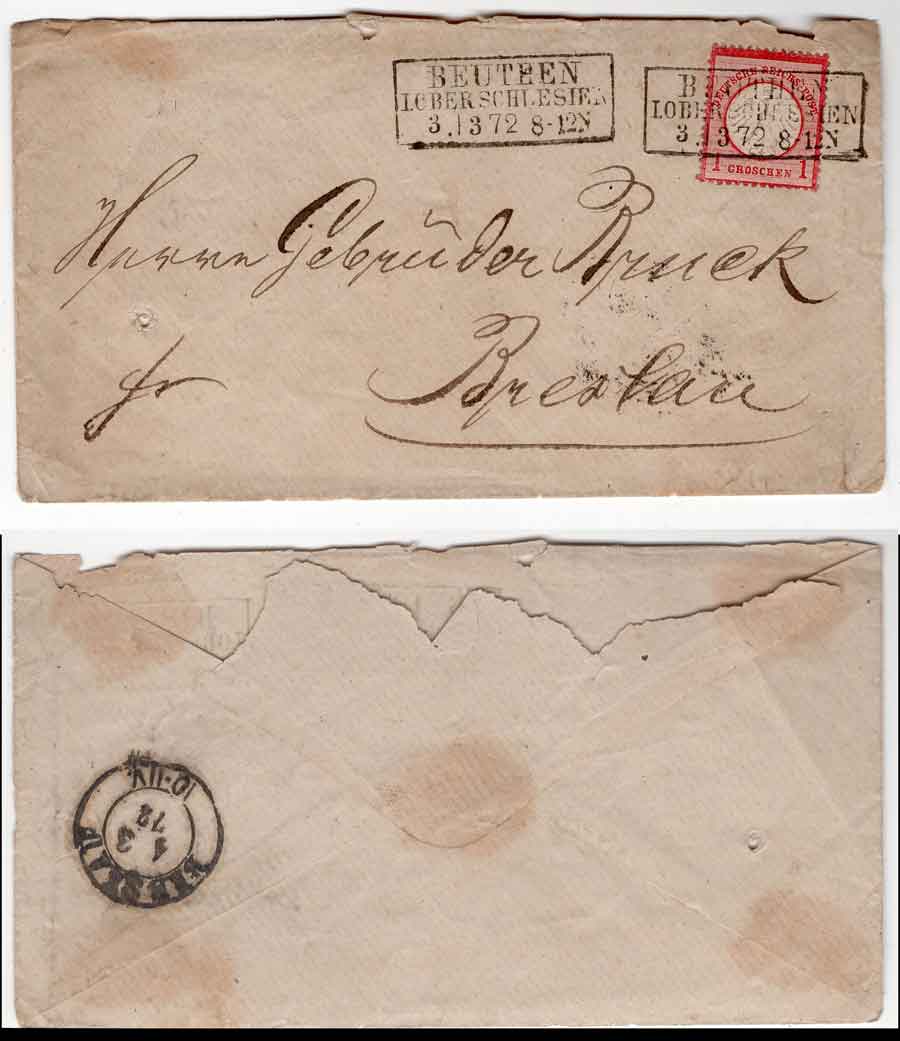 BEUTHEN
I.OBERSCHLESIEN
3.|3 72 8-12N
BEUTHEN
I.OBERSCHLESIEN
3.|3 72 8-12N
DEUTSCHE REICHS-POST
1 GROSCHEN 1
Herren Gebrüder Bruck
fr Breslau
BRESLAU
4 3
72
10-11V